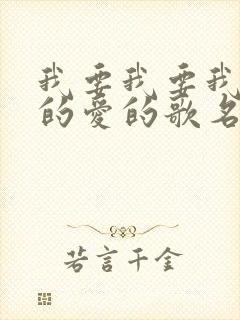 我要我要我
的爱的歌名
若言千金